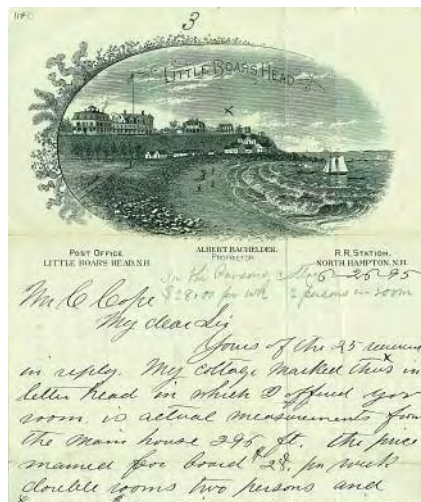 3
LITTLE BOARS HEAD
POST OFFICE
LITTLE BOARS HEAD, N.H.
ALBERT BACHELDER,
PROPRIETOR
R.R. STATION,
NORTH HAMPTON, N.H.
In the Parsons cottage
$28.00 per wk 2 persons in room
6-26-95
Mr C Cope
My dear Sir
Yours of the 25 received
in reply. My cottage marked thus x in
letter head in which I offered you
room is actual measurements from
the main house 295 ft. the price
named for board $28. per week
double rooms two persons and